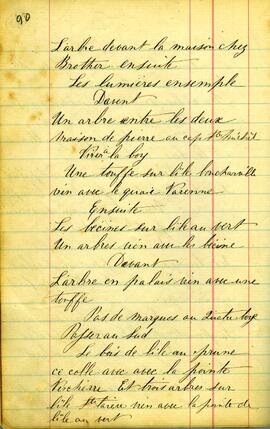 90
L'arbre devant la maison chez
Brother ensuite
Les lumieres ensemple
Davant
Un arbre entre les deux
maison de pierre au cap
la boy
Une touffe sur l'ile
vin avec le quaie Varenne
Ensuite
Les sur l'ile au vert
Un arbres vien avec le
Davant
L'arbre en palais vien avec une
touffe
Pas de marques au
Passer au sud
Le bois de l'ile au prune
ce colle avec avec la pointe
Et trois arbres sur
l'ile vien avec la pointe de
l'ile au vert